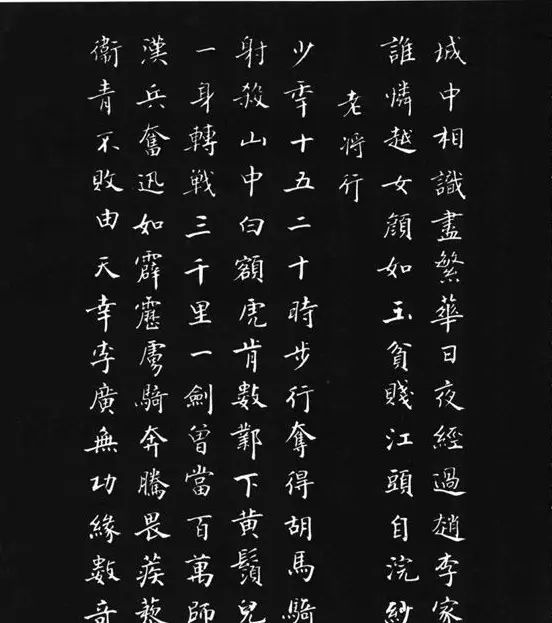 城中相識盡繁華日夜經過趙李家
誰憐越女顏如玉貧賤江頭自浣紗
老將行
少年十五二十時步行奪得胡馬騎
射殺山中白額虎肯數鄴下黃鬚兒
一身轉戰三千里一劍曾當百萬師
漢兵奮迅如霹靂虜騎奔騰畏蒺藜
衛青不敗由天幸李廣無功緣數奇